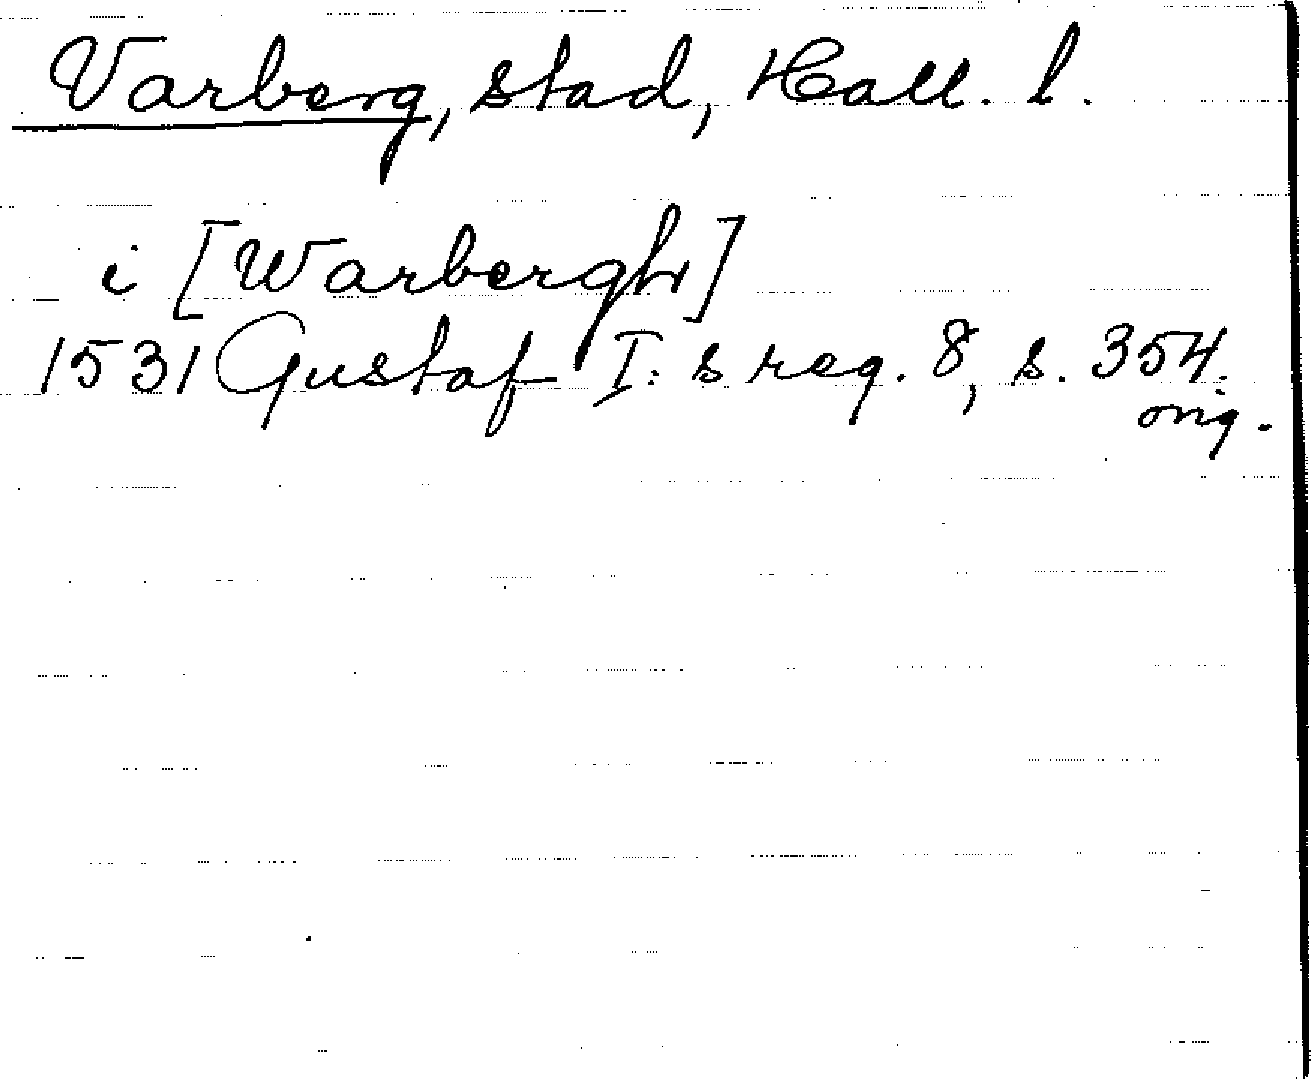 Varberg, stad, Hall. l.
i [Warbergh]
1531 Gustaf I:s reg. 8, s. 354.
orig.